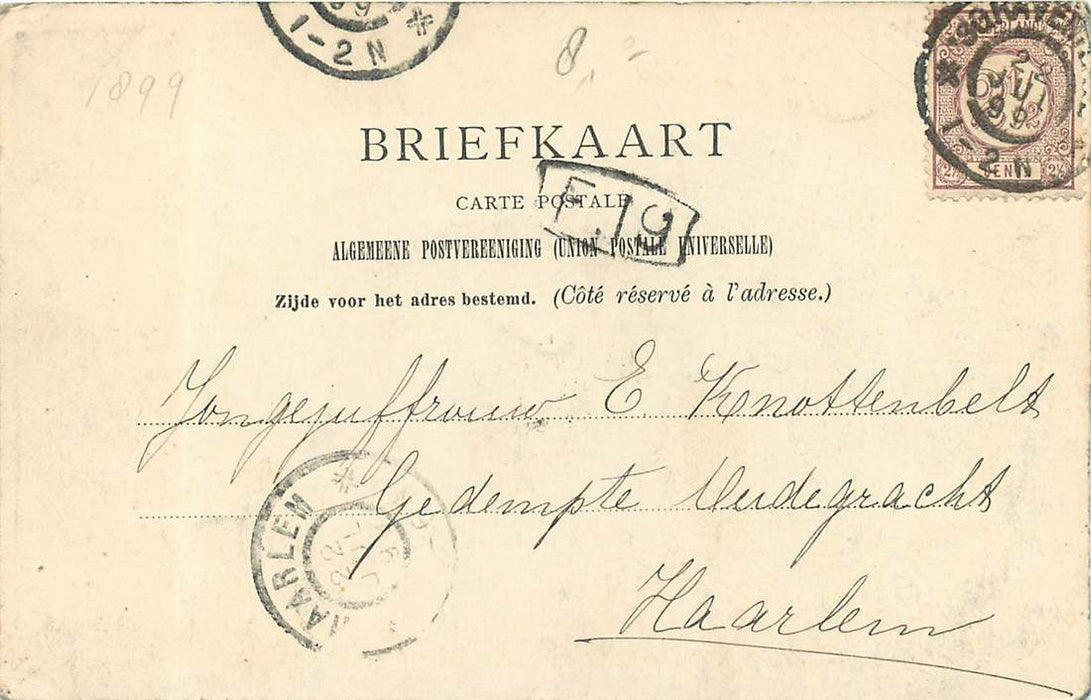 1-2N
8,-
1899
BRIEFKAART
CARTE POSTALE
F.19
ALGEMEENE POSTVEREENIGING (UNION POSTALE UNIVERSELLE)
Zijde voor het adres bestemd. (Côté réservé à l'adresse.)
2½ CENT 2½
99
1-2N
Jongejuffrouw E. Knottenbelt
Gedempte Oudegracht
Haarlem
HAARLEM